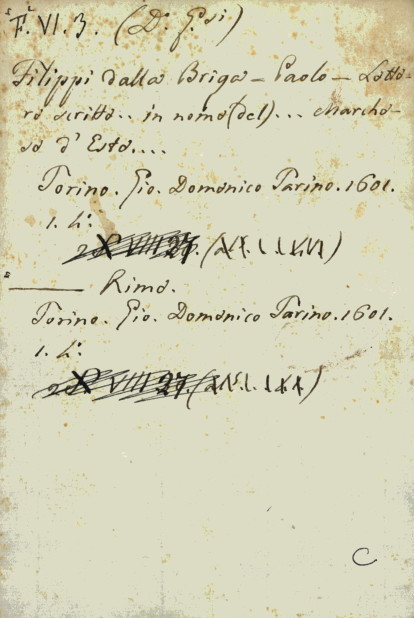 F. VI. 3. (D. G.si)
Filippi dalla Briga - Paolo - Lette-
re scritte.. in nome (del)... Marche-
se d'Este....
Torino. Gio. Domenico Tarino. 1601.
1. h:
X VIII 27.
" ——— Rime.
Torino. Gio. Domenico Tarino. 1601.
1. h:
X VIII 27.
C